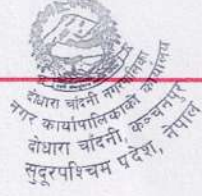 दोधारा चाँदनी नगरपालिका
नगर कार्यपालिकाको कार्यालय
दोधारा चाँदनी, कञ्चनपुर
सुदूरपश्चिम प्रदेश, नेपाल